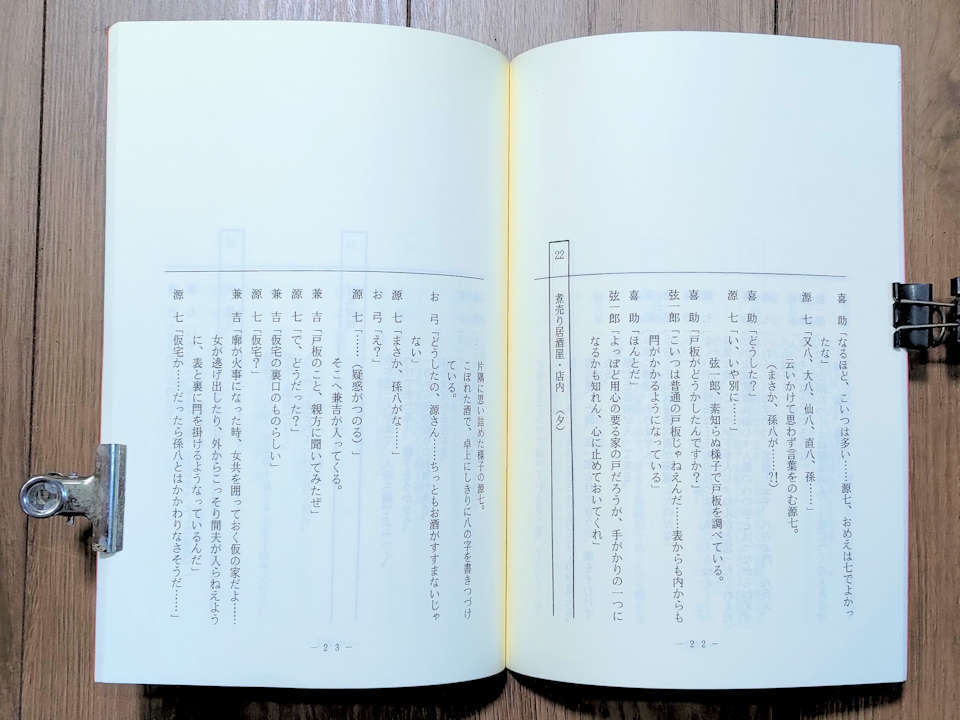 喜　助「なるほど、こいつは多い……源七、おめえは七でよかっ
たな」
源　七「又八、大八、仙八、直八、孫……」
云いかけて思わず言葉をのむ源七。
（まさか、孫八が……?!）
喜　助「どうした？」
源　七「い、いや別に……」
弦一郎、素知らぬ様子で戸板を調べている。
喜　助「戸板がどうかしたんですか？」
弦一郎「こいつは普通の戸板じゃねえんだ……表からも内からも
閂がかかるようになっている」
喜　助「ほんとだ」
弦一郎「よっぽど用心の要る家の戸だろうが、手がかりの一つに
なるかも知れん、心に止めておいてくれ」
22　煮売り居酒屋・店内　（夕）
－２２－
片隅に思い詰めた様子の源七。
こぼれた酒で、卓上にしきりに八の字を書きつづけ
ている。
お　弓「どうしたの、源さん……ちっともお酒がすすまないじゃ
ない」
源　七「まさか、孫八がな……」
お　弓「え？」
源　七「……（疑惑がつのる）」
そこへ兼吉が入ってくる。
兼　吉「戸板のこと、親方に聞いてみたぜ」
源　七「で、どうだった？」
兼　吉「仮宅の裏口のものらしい」
源　七「仮宅？」
兼　吉「廓が火事になった時、女共を囲っておく仮の家だよ……
女が逃げ出したり、外からこっそり間夫が入らねえよう
に、表と裏に閂を掛けるようなっているんだ」
源　七「仮宅か……だったら孫八とはかかわりなさそうだ……」
－２３－